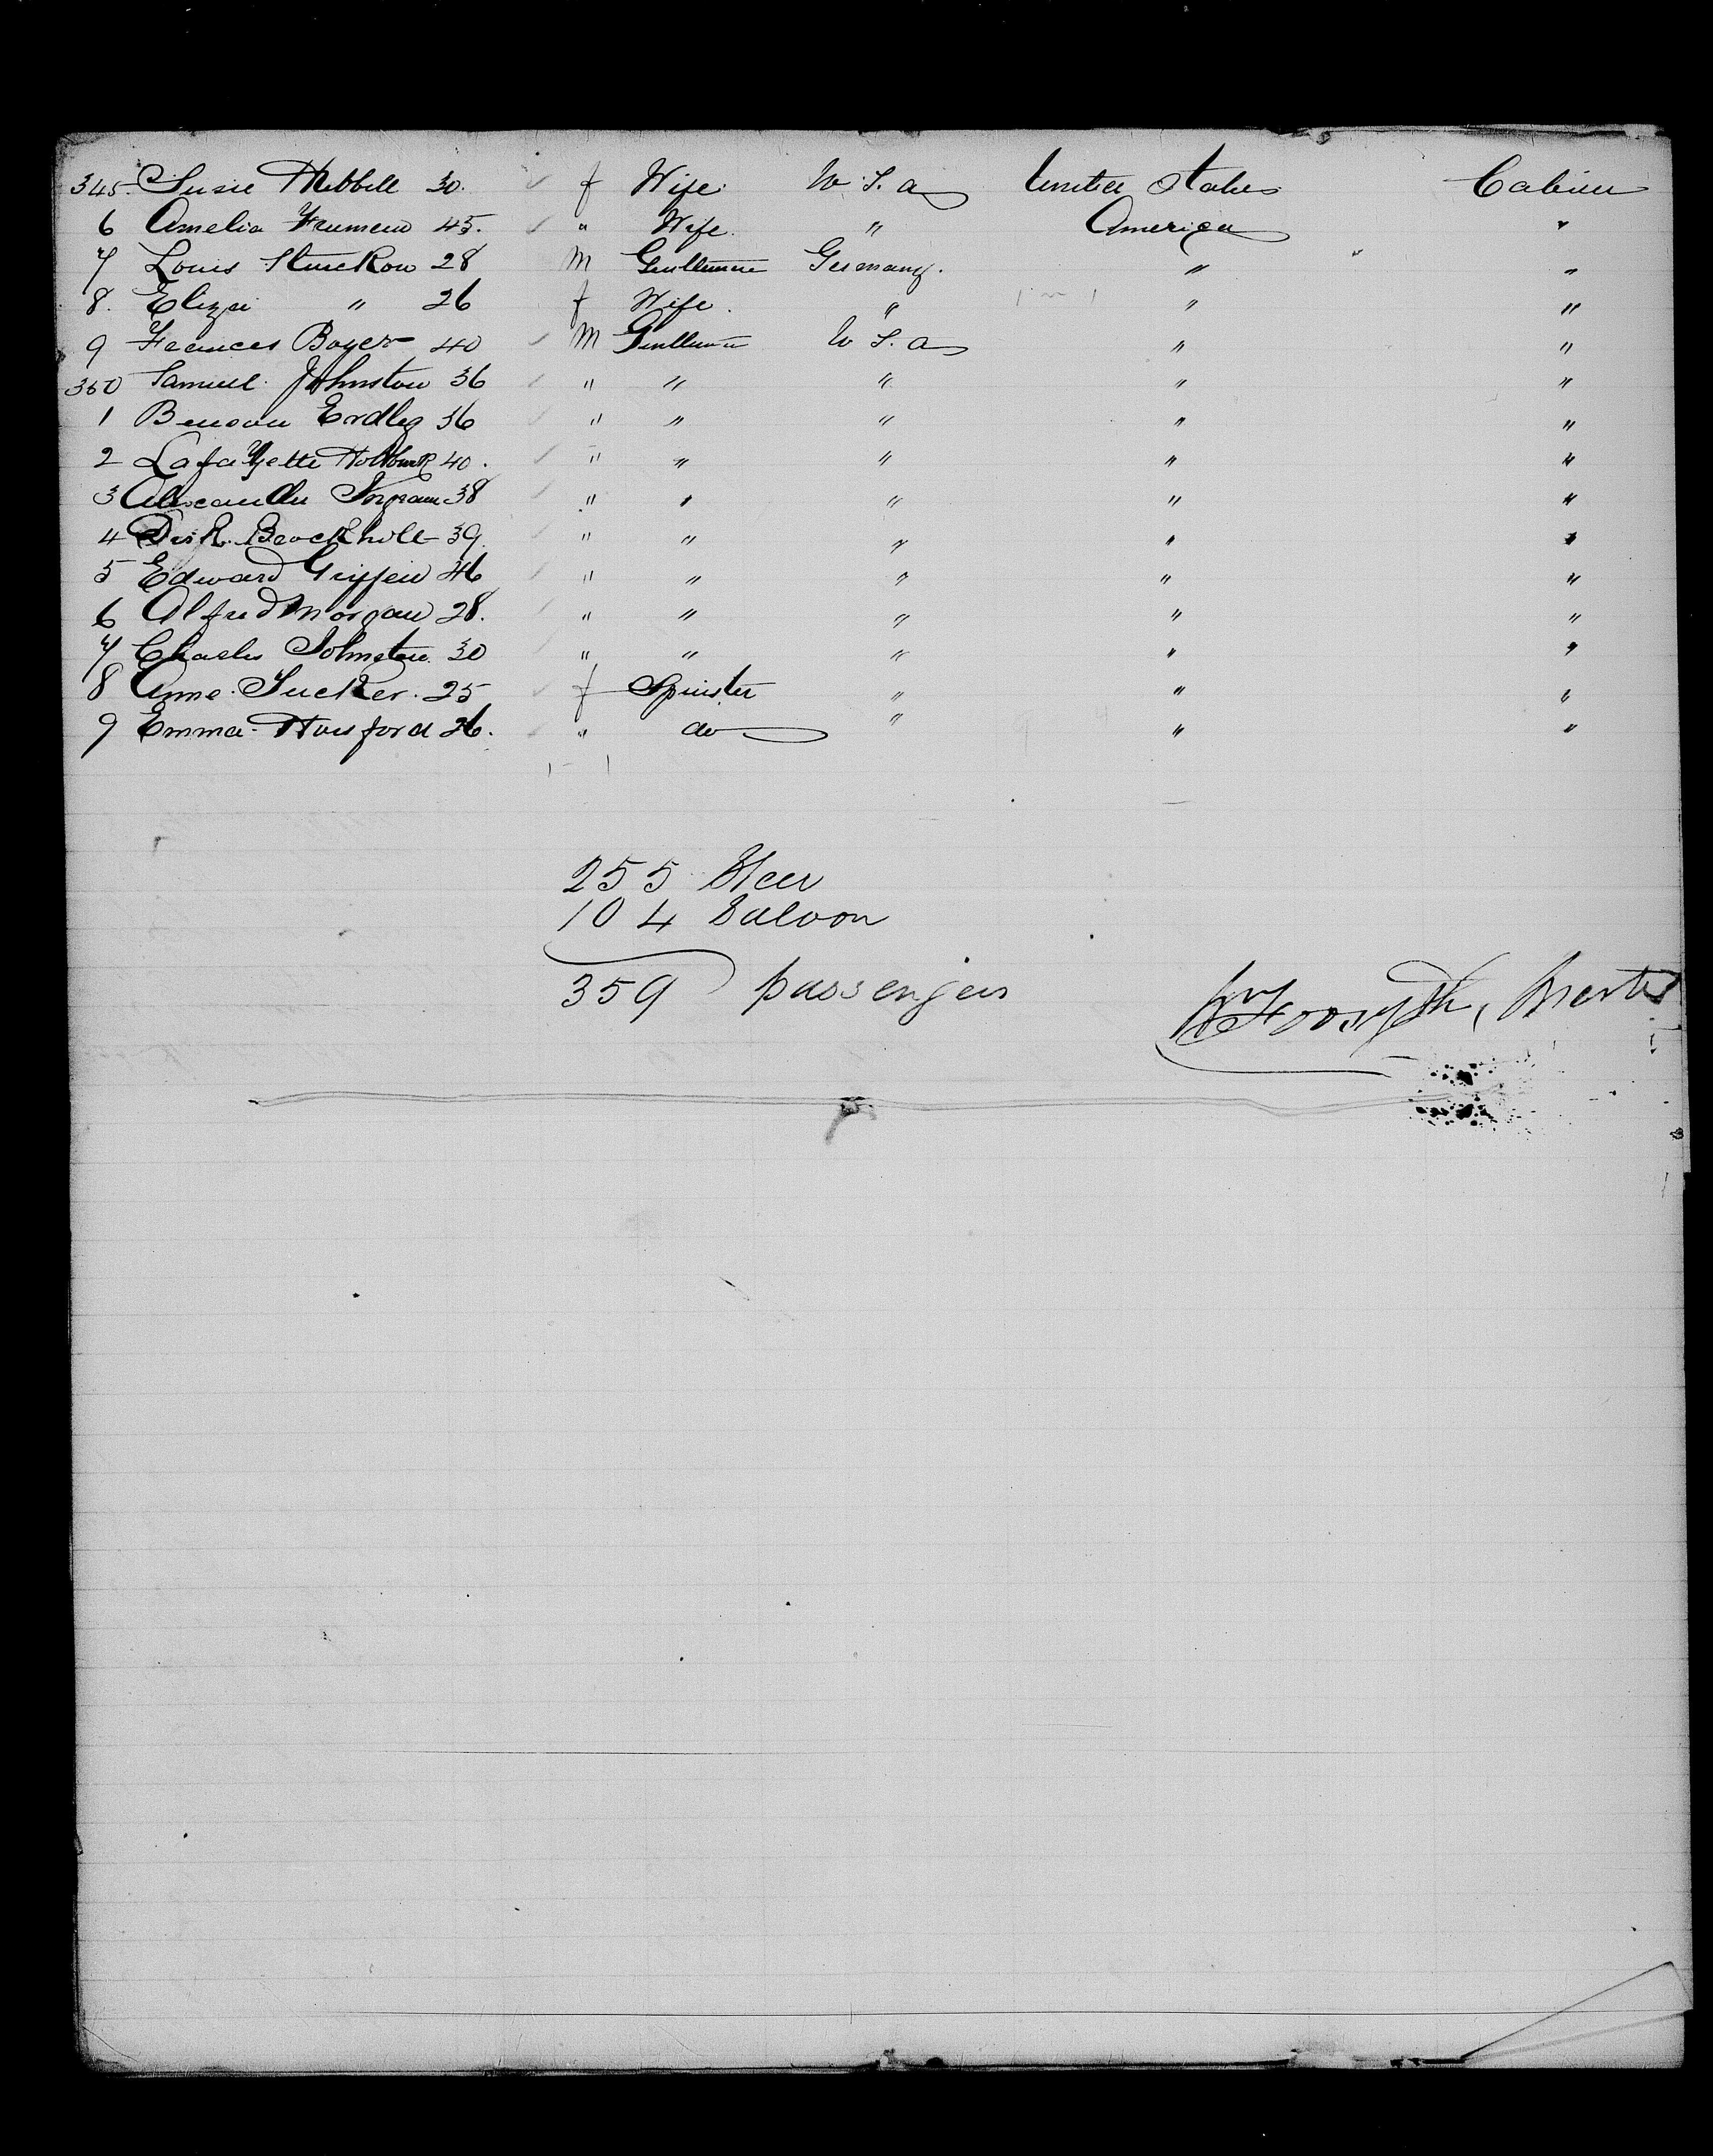 345. Susie Hibbell 30. f Wife. U. S. a United States Cabin
6 Amelia 45. " Wife. " America "
7 Louis 28 M Gentleman Germany. " "
8. Eliza " 26 f Wife. " " "
9 Frances Boyer 40 M Gentleman U S. a " "
350 Samuel Johnston 36 " " " " "
1 Benson Erdley 36 " " " " "
2 LafaYette 40. " " " " "
3 Alexander Ingram 38 " " " " "
4 39. " " " " "
5 Edward Griffin 46 " " " " "
6 Alfred Morgan 28. " " " " "
7 Charles Johnston. 30 " " " " "
8 Anne Tucker. 25 f Spinster " " "
9 Emma Horsford 26. " do " " "
255 Steer
104 Saloon
359 passengers
Wm Forsyth, Master